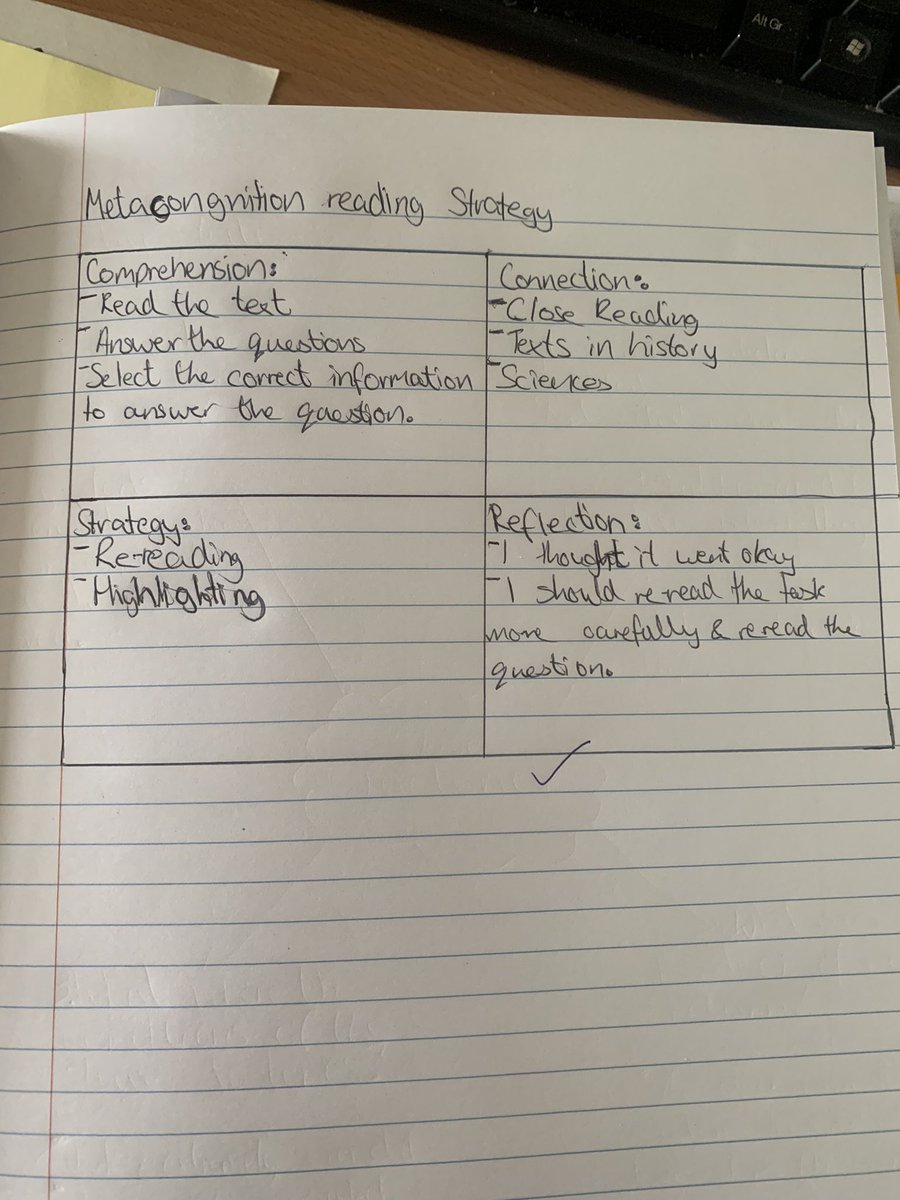 Alt Gr
Metacongnition reading Strategy
Comprehension:
- Read the text
- Answer the questions
- Select the correct information
to answer the question.
Connection:
- Close Reading
- Texts in history
- Sciences
Strategy:
- Re-reading
- Highlighting
Reflection:
- I thought it went okay
- I should re-read the task
more carefully & reread the
question.